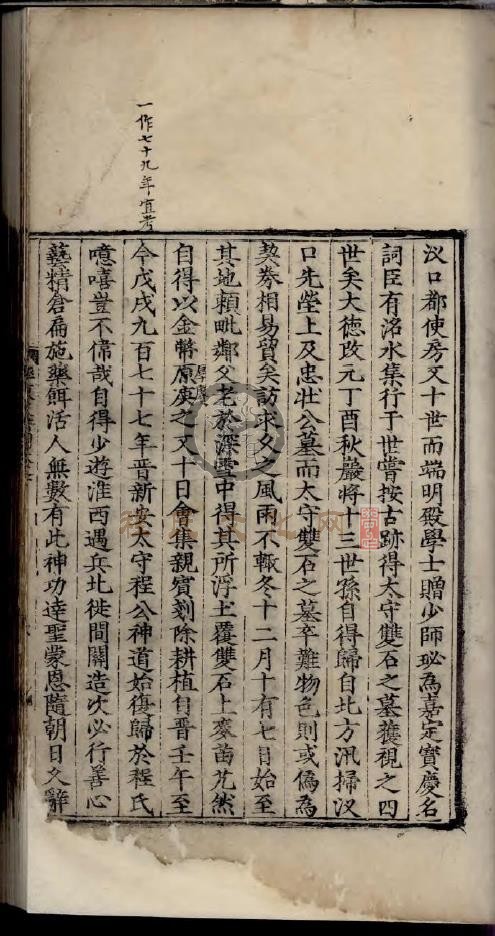 一作七十九年宜考
汊口都使房又十世而端明殿學士贈少師珌為嘉定寶慶名
詞臣有洺水集行于世嘗按古跡得太守雙石之墓獲視之四
世矣大德改元丁酉秋巖將十三世孫自得歸自北方汛掃汊
口先塋上及忠壯公墓而太守雙石之墓卒難物色則或偽為
契券相易貿矣訪求久之風雨不輟冬十二月十有七日始至
其地賴毗鄰父老於深雪中得其所浮土覆雙石上麥苗芃然
自得以金幣厚庚之又十日會集親賓剗除耕植自晉壬午至
今戊戌九百七十七年晋新安太守程公神道始復歸於程氏
噫嘻豈不偉哉自得少遊淮西遇兵北徙間關造次必行善心
藝精倉扁施藥餌活人無數有此神功達聖蒙恩隨朝日久辭